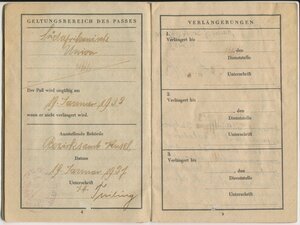 GELTUNGSBEREICH DES PASSES
Südafrikanische
Union
Der Paß wird ungültig am
19 Januar 1932
wenn er nicht verlängert wird.
Ausstellende Behörde
Bezirksamt
Datum
19 Januar 1927
Unterschrift
4
VERLÄNGERUNGEN
1.
Verlängert bis
, den
Dienststelle
Unterschrift
2.
Verlängert bis
, den
Dienststelle
Unterschrift
3.
Verlängert bis
, den
Dienststelle
Unterschrift
5